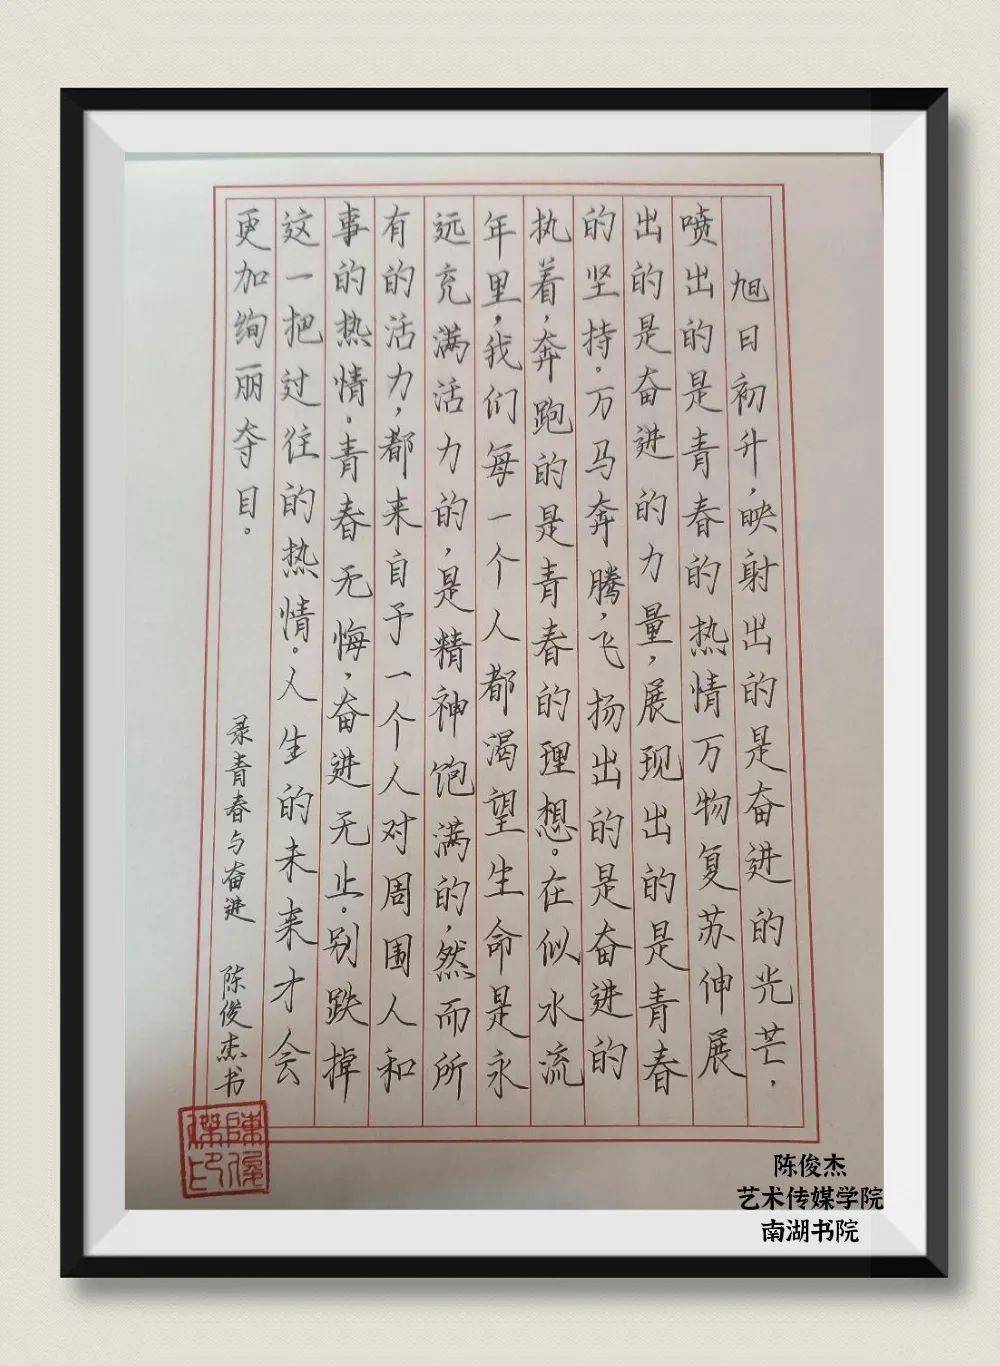 旭日初升，映射出的是奋进的光芒，
喷出的是青春的热情万物复苏伸展
出的是奋进的力量，展现出的是青春
的坚持。万马奔腾，飞扬出的是奋进的
执着，奔跑的是青春的理想。在似水流
年里，我们每一个人都渴望生命是永
远充满活力的，是精神饱满的，然而所
有的活力，都来自予一个人对周围人和
事的热情。青春无悔，奋进无止。别跌掉
这一把过往的热情。人生的未来才会
更加绚丽夺目。
录青春与奋进 陈俊杰书
陳俊傑印
陈俊杰
艺术传媒学院
南湖书院